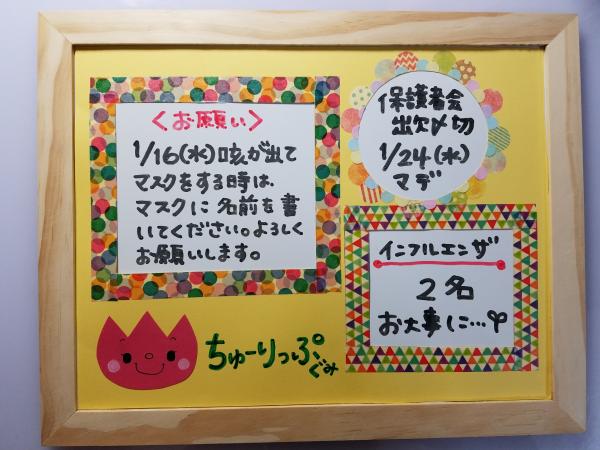 〈お願い〉
1/16(水)咳が出て
マスクをする時は、
マスクに名前を書
いてください。よろしく
お願いします。
保護者会
出欠〆切
1/24(水)
マデ
インフルエンザ
2名
お大事に…
ちゅーりっぷぐみ